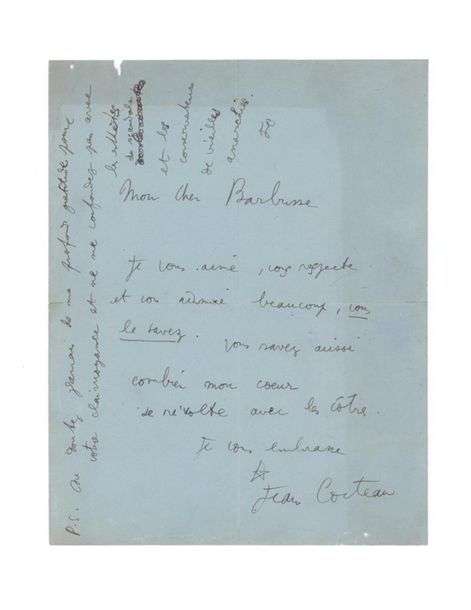 Mon cher Barbusse
Je vous aime, vous respecte
et vous admire beaucoup, vous
le savez. Vous savez aussi
combien mon coeur
se révolte avec le vôtre.
Je vous embrasse
Jean Cocteau
P.S. Ne doutez jamais de ma profonde gratitude pour
votre clairvoyance et ne me confondez pas avec
les esthètes
de scandale
et les
conservateurs
de vieilles
anarchies.